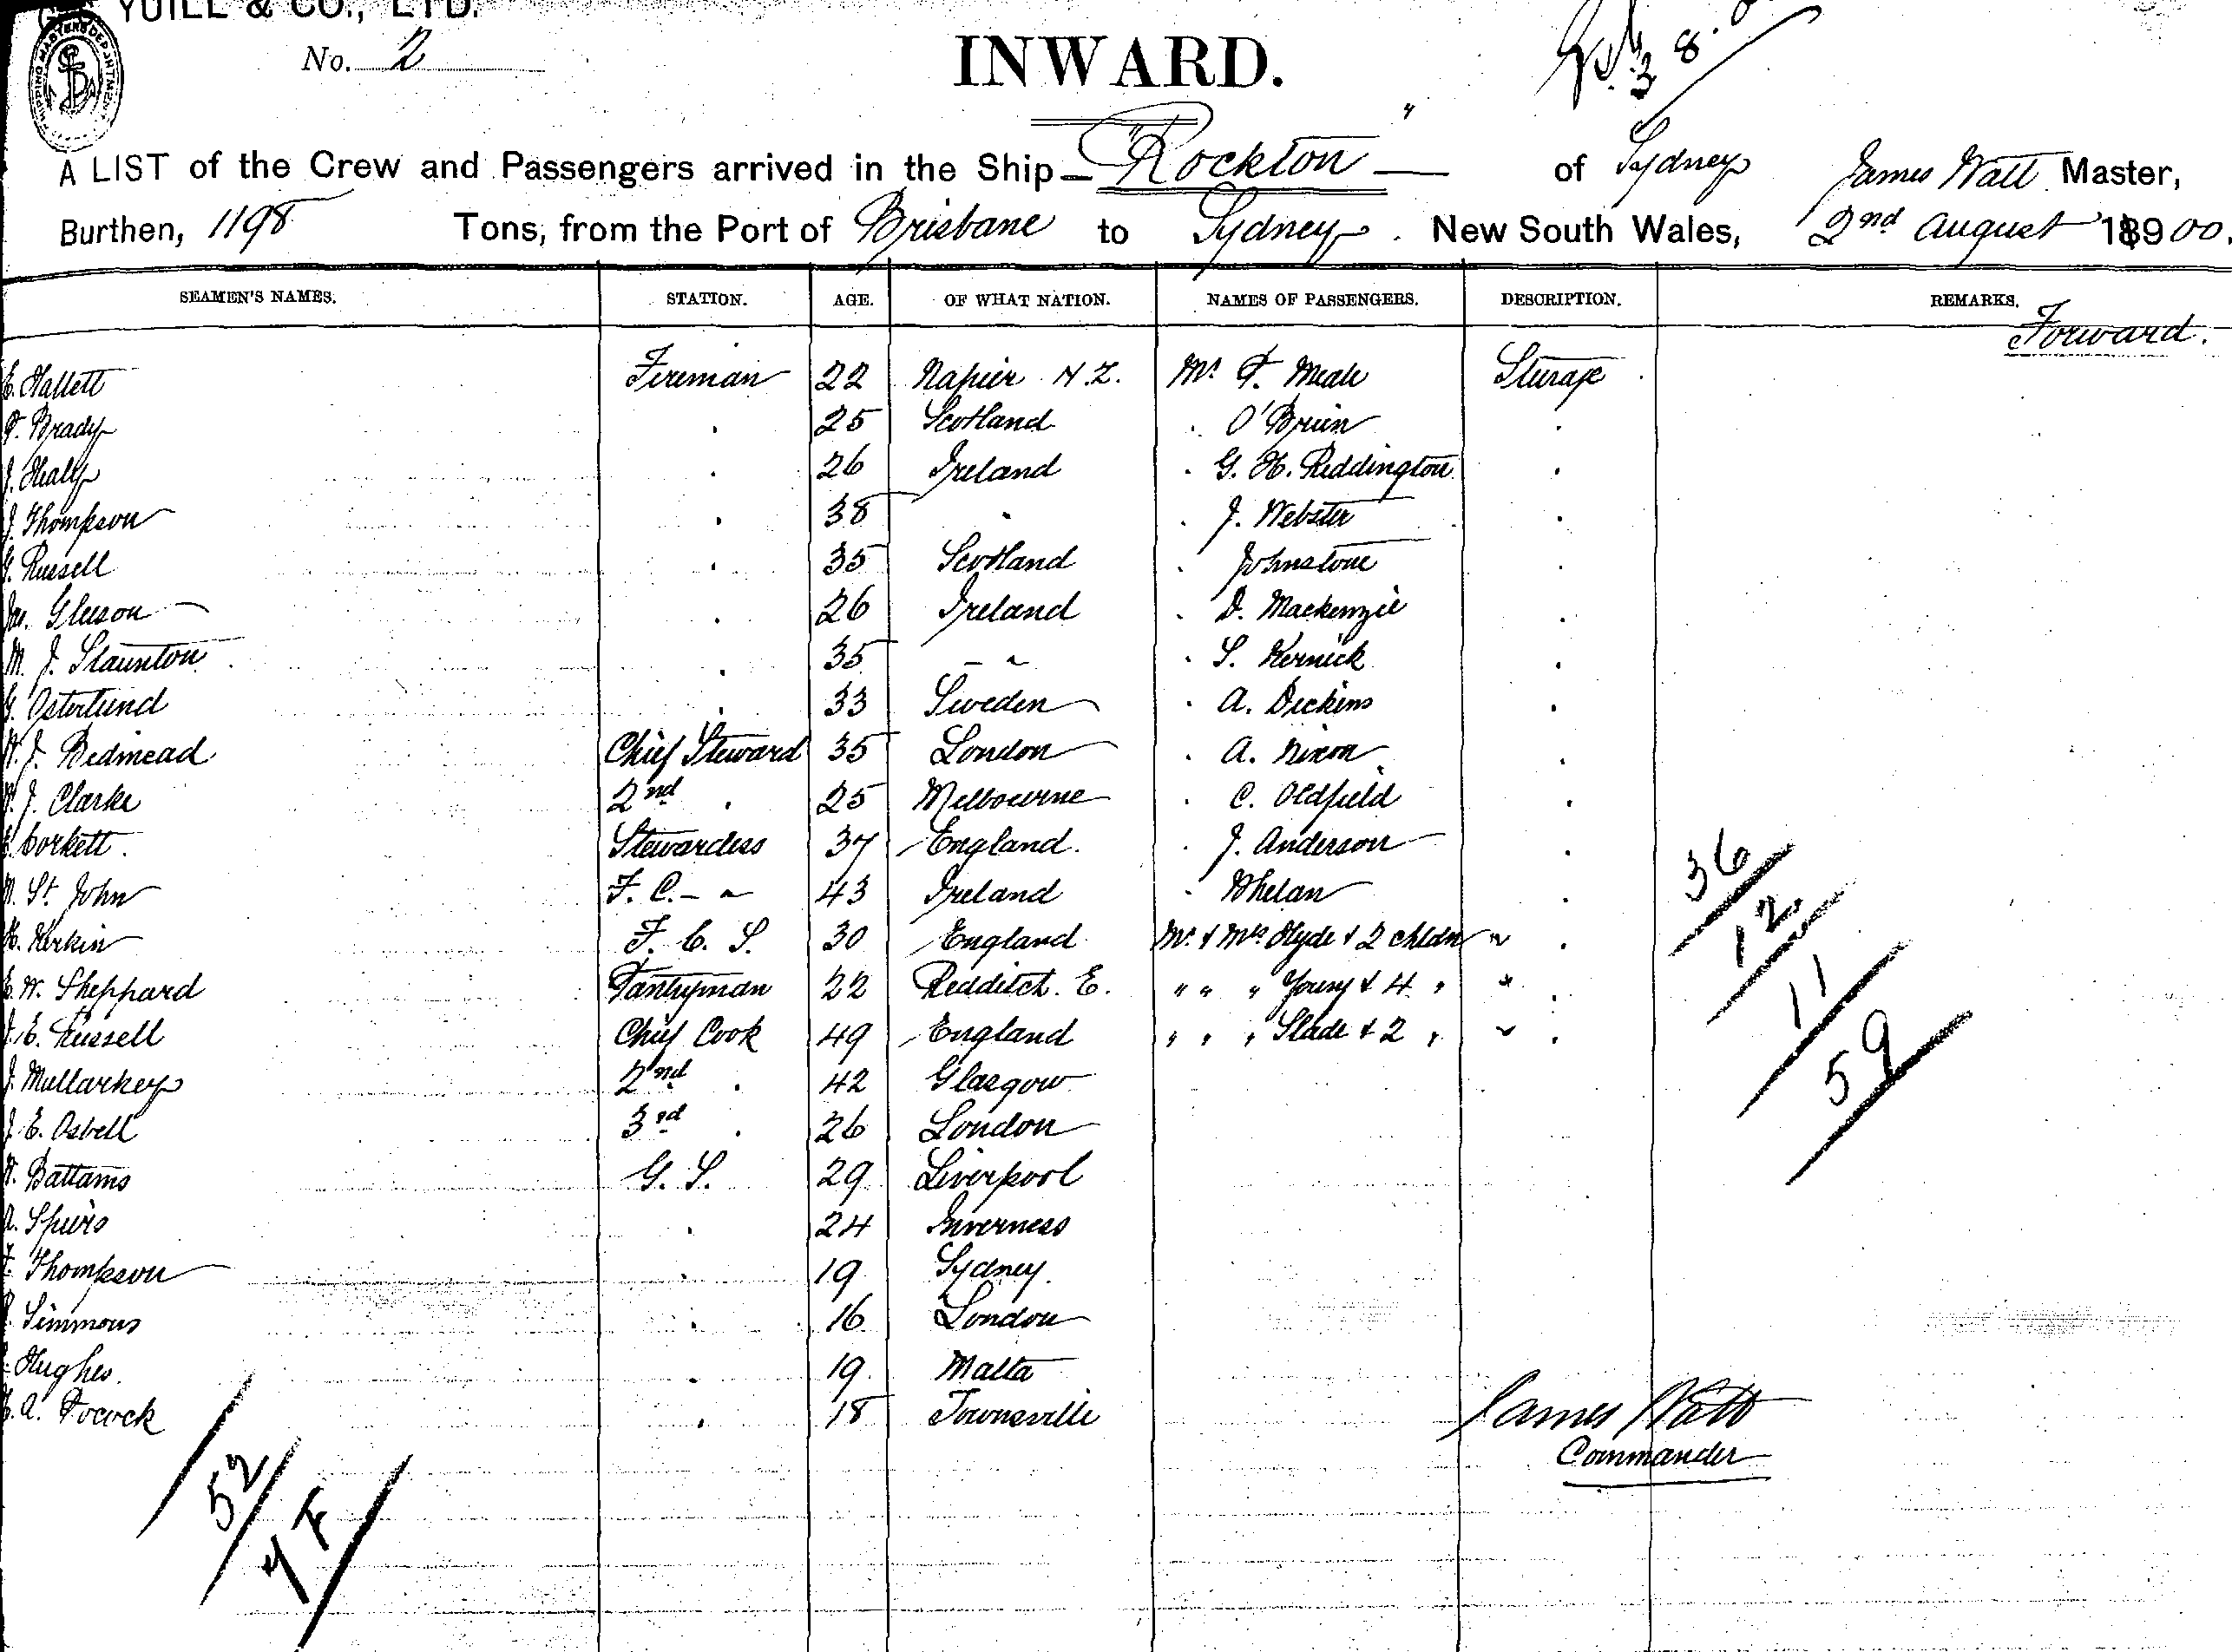 YUILL & CO., LTD.
No. 2
INWARD.
A LIST of the Crew and Passengers arrived in the Ship "Rockton" of Sydney James Watt Master,
Burthen, 1198 Tons, from the Port of Brisbane to Sydney. New South Wales, 2nd August 1900.
SEAMEN'S NAMES. STATION. AGE. OF WHAT NATION. NAMES OF PASSENGERS. DESCRIPTION. REMARKS.
Forward.
E. Hallett Fireman 22 Napier N.Z. Mr F. Meale Sturage
T. Brady . 25 Scotland . O'Brien .
J. Healy . 26 Ireland . G. H. Reddington .
J. Thompson . 38 . . J. Webster .
G. Russell . 35 Scotland . Johnstone .
Jas. Gleeson . 26 Ireland . D. Mackenzie .
M. J. Staunton . 35 - " . S. Kernick .
G. Osterlund . 33 Sweden . A. Dickins .
W. J. Bedmead Chief Steward 35 London . A. Nixon .
W. J. Clarke 2nd . 25 Melbourne . C. Oldfield .
Corkett. Stewardess 37 England. . J. Anderson .
M. St. John F. C. - " 43 Ireland . Whelan .
H. Kerkin F. C. S. 30 England Mr. & Mrs Hyde & 2 chldn " .
E. W. Sheppard Pantryman 22 Redditch. E. " " " Young & 4 " " .
J. E. Russell Chief Cook 49 England " " " Slade & 2 " " .
J. Mullarkey 2nd . 42 Glasgow
J. E. Osbell 3rd . 26 London
W. Battams G. S. 29 Liverpool
A. Spiers . 24 Inverness
F. Thompson . 19 Sydney.
Simmons . 16 London
Hughes. . 19. Malta
E. A. Pocock . 18 Townsville
36
12
11
59
James Watt
Commander
52